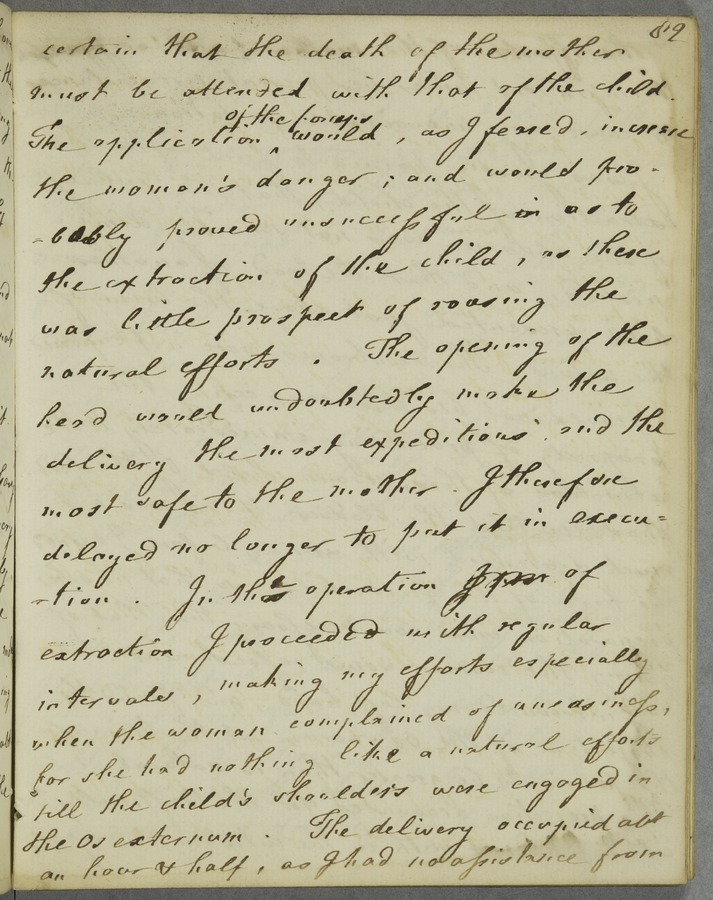 89
certain that the death of the mother
must be attended with that of the child.
of the forceps
The application ^ would, as I feared, increase
the woman's danger; and would pro-
-bably proved unsuccessful in as to
the extraction of the child, as there
was little prospect of rousing the
natural efforts. The opening of the
head would undoubtedly make the
delivery the most expeditious and the
most safe to the mother. I therefore
delayed no longer to put it in execu=
-tion. In the operation of
extraction I proceeded with regular
intervals, making my efforts especially
when the woman complained of uneasiness,
for she had nothing like a natural efforts
till the child's shoulders were engaged in
the Os externum. The delivery occupied abt
an hour & half, as I had no assistance from